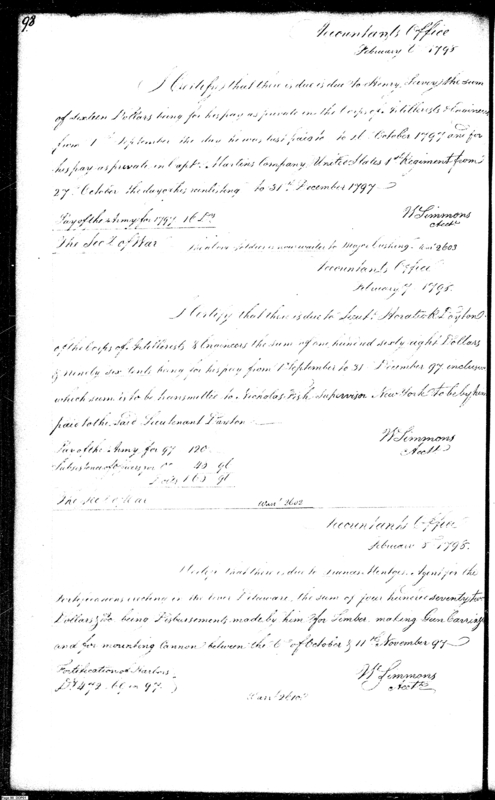 98
Accountants Office
February 6 1798
I Certify, that there is due is due to Henry the sum
of sixteen Dollars being for his pay as private in the Corps of Artillerists & Engineers
from 1st September the day he was last paid to to 31 October 1797 and for
his pay as private in Capt. Martins Company, United States 1st Regiment from
27 October the day of his enlisting to 31st December 1797
Pay of the Army for 1797 16
W Simmons
Acct
The Sec. of War
soldier is now waiter to Major Cushing. 2603
Accountants Office
February 7 1798.
I Certify that there is due to Lieut. Horatio R Dayton
of the Corps of Artillerists & Engineers the sum of one hundred sixty eight Dollars
& ninety six Cents being for his pay from 1st September to 31 December 97 inclusive
which sum is to be transmitted to Nicholas Fish Supervisor New York to be by him
paid to the Said Lieutenant Dayton
W Simmons
Acctt
Pay of the Army for 97 120.
Subsistence 48 96
168 96
The Sec of War
Warrt 2602
Accountants Office
February 8th 1798.
I Certify that there is due to Agent for the
Fortifications erecting on the river Delaware, the sum of four hundred seventy two
Dollars being Disbursements made by him for Timber, making Gun Carriages
and for mounting Cannon between the 6th of October & 11th November 97
Fortification of Harbors
Ds 472. 60 in 97.
Wm Simmons
Acctt